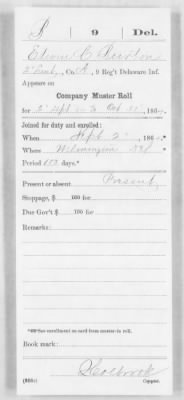 P 9 Del.
Edwin C
2' Lieut, Co. A, 9 Reg't Delaware Inf.
Appears on
Company Muster Roll
for Sept 2 to Oct 31, 186
Joined for duty and enrolled:
When Sept 2, 186
Where Wilmington Del
Period days.*
Present or absent Present
Stoppage, $ 100 for
Due Gov't $ 100 for
Remarks:
*See enrollment on card from muster-in roll.
Book mark:
Holbrook
Copyist.